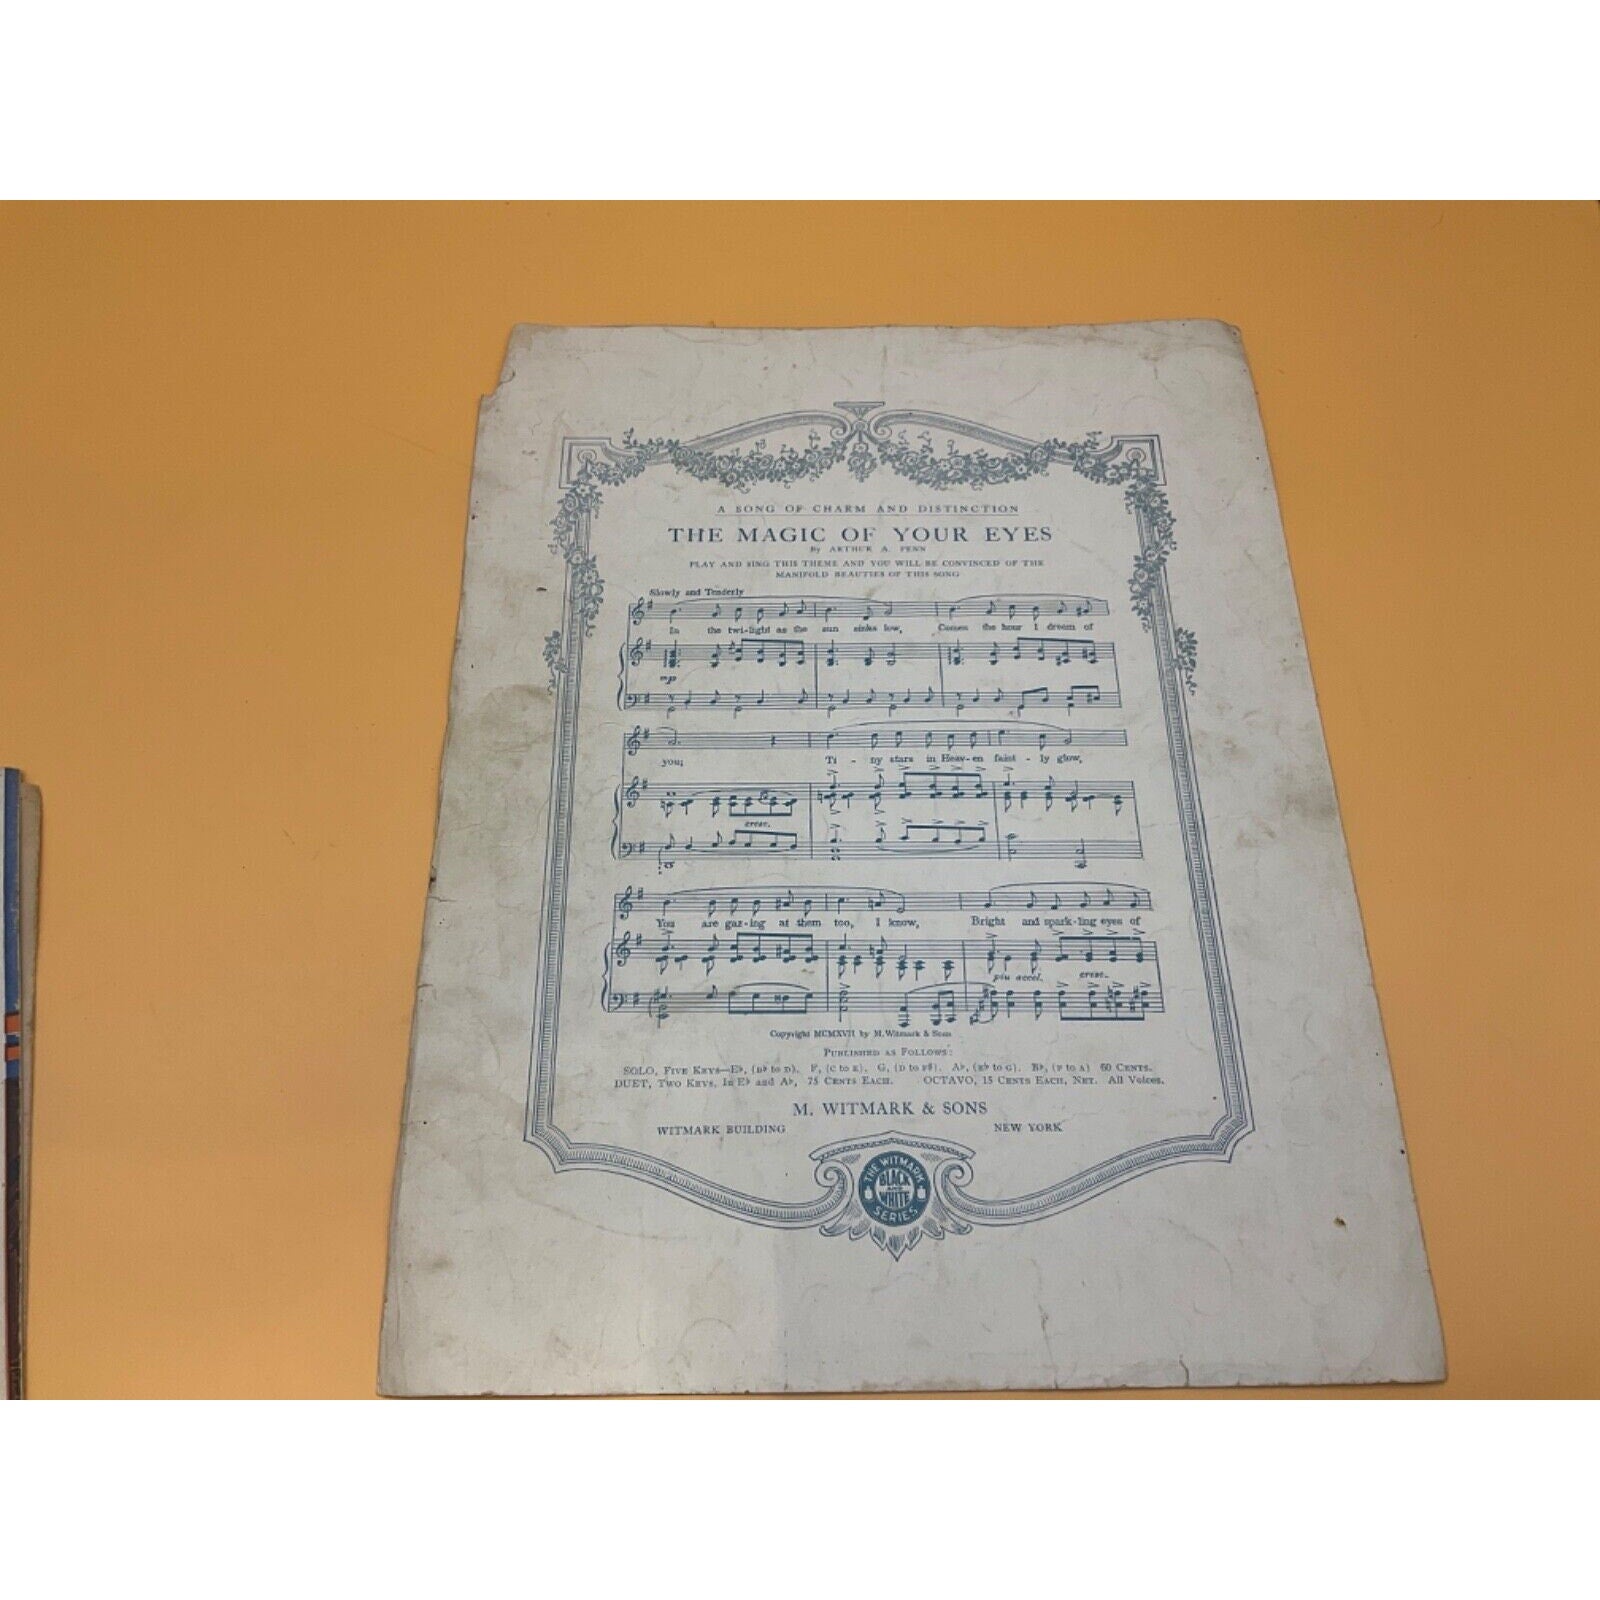 A SONG OF CHARM AND DISTINCTION
THE MAGIC OF YOUR EYES
By ARTHUR A. PENN
PLAY AND SING THIS THEME AND YOU WILL BE CONVINCED OF THE
MANIFOLD BEAUTIES OF THIS SONG
Slowly and Tenderly
In the twi-light as the sun sinks low, Comes the hour I dream of
mp
you; Ti - ny stars in Heav-en faint - ly glow,
cresc.
You are gaz-ing at them too, I know, Bright and spark-ling eyes of
più accel. cresc.
Copyright MCMXVII by M. Witmark & Sons
PUBLISHED AS FOLLOWS:
SOLO, FIVE KEYS—E♭, (B♭ TO D). F, (C TO E), G, (D TO F♯). A♭, (E♭ TO G). B♭, (F TO A) 60 CENTS.
DUET, TWO KEYS, IN E♭ AND A♭, 75 CENTS EACH. OCTAVO, 15 CENTS EACH, NET. ALL VOICES.
M. WITMARK & SONS
WITMARK BUILDING NEW YORK
THE WITMARK
BLACK
AND
WHITE
SERIES